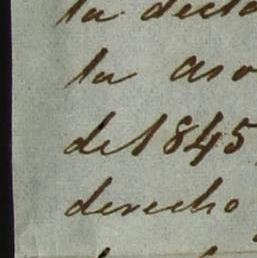 la decla
la aso
del 1845
derecho